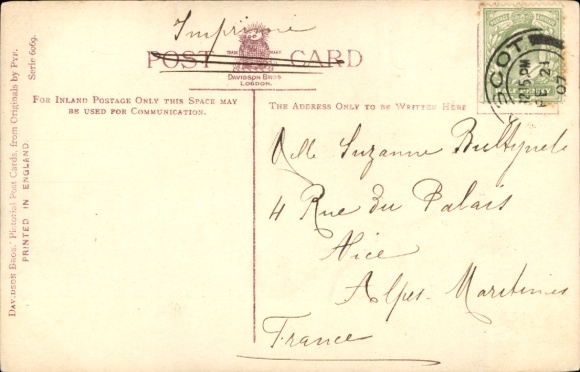 Imprimé
POST CARD
TRADE MARK
DAVIDSON BROS.
LONDON.
FOR INLAND POSTAGE ONLY THIS SPACE MAY
BE USED FOR COMMUNICATION.
THE ADDRESS ONLY TO BE WRITTEN HERE
DAVIDSON BROS.' Pictorial Post Cards, from Originals by PYP.
Serie 6069.
PRINTED IN ENGLAND
Mlle Suzanne
4 Rue du Palais
Nice
Alpes-Maritimes
France
POSTAGE REVENUE
HALF PENNY
COT
PM
21
07